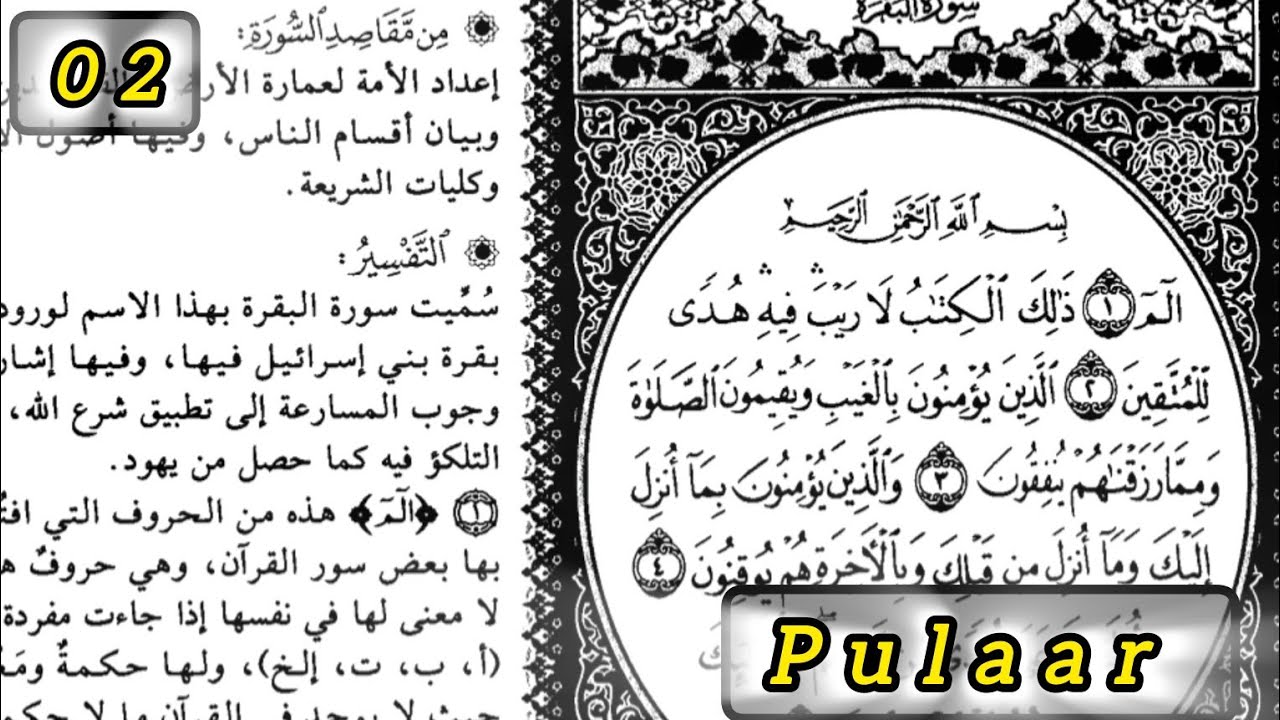 02
سُورَةُ البَقَرَةِ
مِن مَّقَاصِدِ السُّورَةِ:
إعداد الأمة لعمارة الأرض
وبيان أقسام الناس، وفيها أصول
وكليات الشريعة.
التَّفْسِيرُ:
سُمِّيت سورة البقرة بهذا الاسم لورود
بقرة بني إسرائيل فيها، وفيها إشار
وجوب المسارعة إلى تطبيق شرع الله،
التلكؤ فيه كما حصل من يهود.
١ ﴿الٓمٓ﴾ هذه من الحروف التي
بها بعض سور القرآن، وهي حروفٌ
لا معنى لها في نفسها إذا جاءت مفردة
(أ، ب، ت، إلخ)، ولها حكمةٌ
حيث لا يوجد في القرآن ما لا
بِسْمِ ٱللَّهِ ٱلرَّحْمَٰنِ ٱلرَّحِيمِ
الٓمٓ ١ ذَٰلِكَ ٱلْكِتَٰبُ لَا رَيْبَ ۛ فِيهِ ۛ هُدًى
لِّلْمُتَّقِينَ ٢ ٱلَّذِينَ يُؤْمِنُونَ بِٱلْغَيْبِ وَيُقِيمُونَ ٱلصَّلَوٰةَ
وَمِمَّا رَزَقْنَٰهُمْ يُنفِقُونَ ٣ وَٱلَّذِينَ يُؤْمِنُونَ بِمَآ أُنزِلَ
إِلَيْكَ وَمَآ أُنزِلَ مِن قَبْلِكَ وَبِٱلْأَخِرَةِ هُمْ يُوقِنُونَ ٤
Pulaar